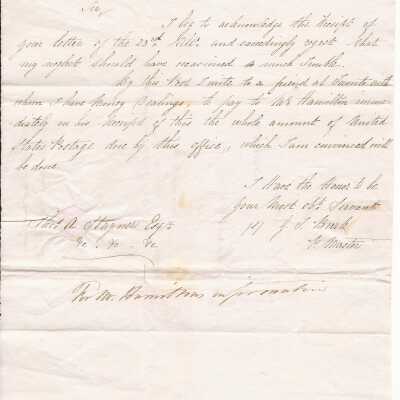 Sir,
I beg to acknowledge the Receipt of
your letter of the 23rd Ulto. and exceedingly regret that
my neglect should have occasioned so much trouble.
By this Post I write to a friend at Toronto with
whom I have Money dealings, to pay to Mr Hamilton imme
diately on his Receipt of this the whole amount of United
States Postage due by this office, which I am convinced will
be done.
I Have the Honor to be
Your Most obt. Servant
J. S.
P. Master
Thos A. Stayner Esqre
&c. &c. &c
For Mr. Hamiltons information